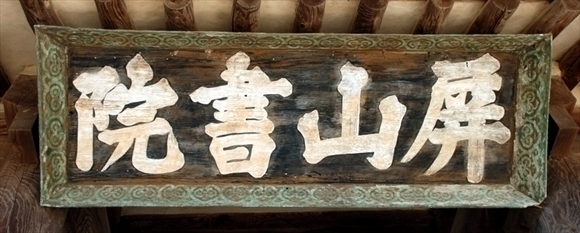 屛山書院